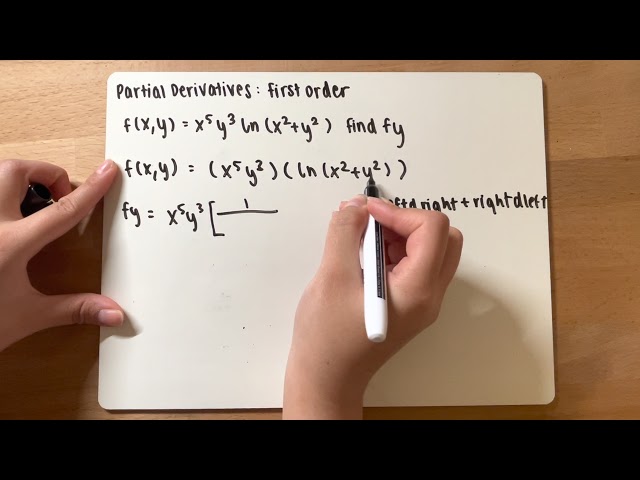 Partial Derivatives: first order
f(x,y) = x⁵y³ ln(x²+y²) find fy
f(x,y) = (x⁵y³)(ln(x²+y²))
d right + right d left
fy = x⁵y³[1/